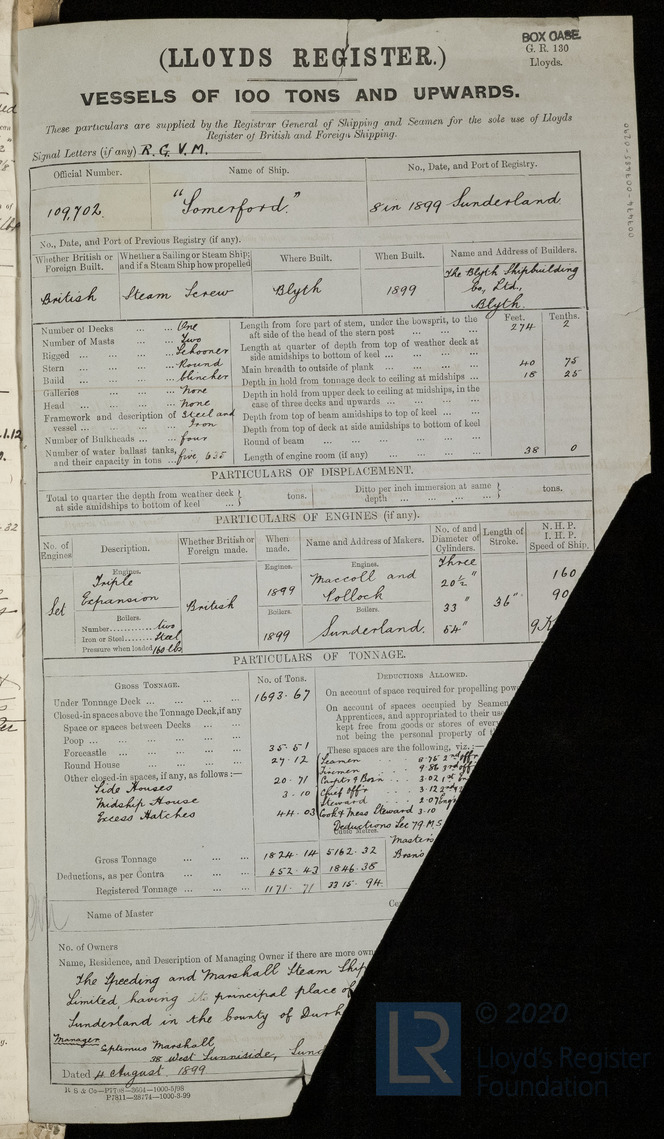 BOX CASE.
G. R. 130
Lloyds.
(LLOYDS REGISTER.)
VESSELS OF 100 TONS AND UPWARDS.
These particulars are supplied by the Registrar General of Shipping and Seamen for the sole use of Lloyds
Register of British and Foreign Shipping.
Signal Letters (if any) R. G. V. M.
Official Number. Name of Ship. No., Date, and Port of Registry.
109,702 "Somerford." 8 in 1899 Sunderland
No., Date, and Port of Previous Registry (if any).
Whether British or Foreign Built. Whether a Sailing or Steam Ship; and if a Steam Ship how propelled Where Built. When Built. Name and Address of Builders.
British Steam Screw Blyth 1899 The Blyth Shipbuilding Co, Ltd, Blyth.
Feet. Tenths.
Number of Decks ... ... One
Number of Masts ... ... Two
Rigged ... ... ... Schooner
Stern ... ... ... Round
Build ... ... ... Clincher
Galleries ... ... ... None
Head ... ... ... None
Framework and description of vessel ... Steel and Iron
Number of Bulkheads ... four
Number of water ballast tanks, and their capacity in tons ... five, 635
Length from fore part of stem, under the bowsprit, to the aft side of the head of the stern post ... ... 274 2
Length at quarter of depth from top of weather deck at side amidships to bottom of keel ... ...
Main breadth to outside of plank ... ... 40 75
Depth in hold from tonnage deck to ceiling at midships ... 18 25
Depth in hold from upper deck to ceiling at midships, in the case of three decks and upwards ... ...
Depth from top of beam amidships to top of keel ... ...
Depth from top of deck at side amidships to bottom of keel
Round of beam ... ...
Length of engine room (if any) ... ... 38 0
PARTICULARS OF DISPLACEMENT.
Total to quarter the depth from weather deck at side amidships to bottom of keel ... } tons. Ditto per inch immersion at same depth ... } tons.
PARTICULARS OF ENGINES (if any).
No. of Engines Description. Whether British or Foreign made. When made. Name and Address of Makers. No. of and Diameter of Cylinders. Length of Stroke. N. H. P. I. H. P. Speed of Ship.
Engines. Engines. Engines. Three
Set Triple Expansion British 1899 Maccoll and Pollock 20½" 33" 54" 36" 160
90
Boilers. Boilers. Boilers.
Number............two
Iron or Steel........Steel
Pressure when loaded 160 lbs
1899 Sunderland.
PARTICULARS OF TONNAGE.
GROSS TONNAGE. No. of Tons. DEDUCTIONS ALLOWED.
Under Tonnage Deck ... ... 1693.67
Closed-in spaces above the Tonnage Deck, if any
Space or spaces between Decks ... ...
Poop ... ... ...
Forecastle ... ... 35.51
Round House ... ... 27.12
Other closed-in spaces, if any, as follows:—
Side Houses 20.71
Midship House 3.10
Excess Hatches 44.03
On account of space required for propelling pow
On account of spaces occupied by Seamen
Apprentices, and appropriated to their use
kept free from goods or stores of every
not being the personal property of t
These spaces are the following, viz.:—
Seamen 8.75 2nd offr
Firemen 9.86 3rd off
Carptr & Bosn 3.02 1st
Chief Offr 3.12 2nd
Steward 2.07
Cook & Mess Steward 3.10
Deductions Sec 79 M S
Master's
Bosn's
Cubic Metres.
Gross Tonnage ... ... 1824.14 5162.32
Deductions, as per Contra ... ... 652.43 1846.38
Registered Tonnage ... ... 1171.71 3315.94
Name of Master Ce
No. of Owners
Name, Residence, and Description of Managing Owner if there are more own
The Speeding and Marshall Steam Ship
Limited having its principal place of
Sunderland in the county of Durh
Manager Septimus Marshall
38 West Sunniside, Sund
Dated 4 August, 1899
007676-007685-0290
LR
© 2020
Lloyd's Register
Foundation